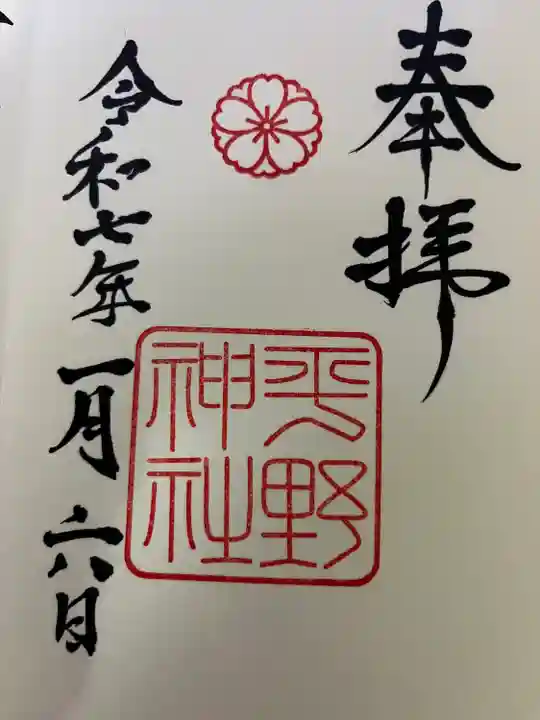 奉拝
平野
神社
令和七年一月六日